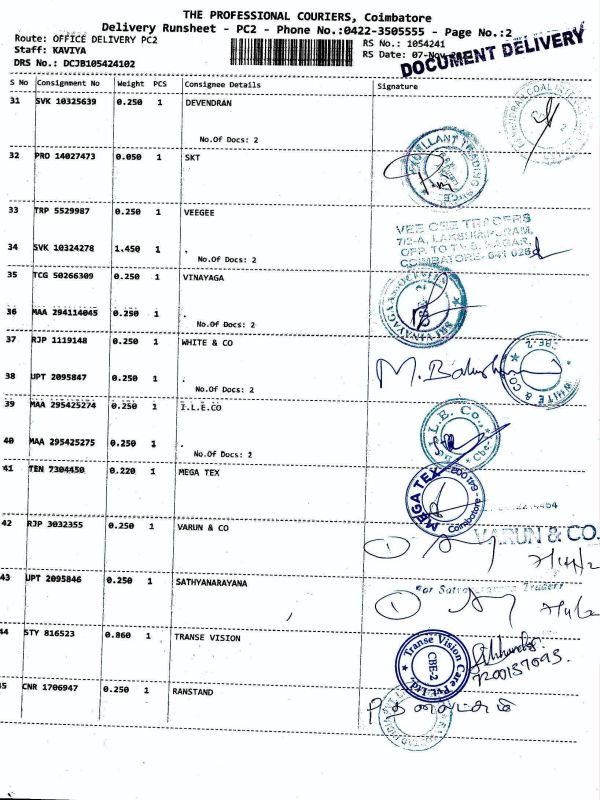 THE PROFESSIONAL COURIERS, Coimbatore
Delivery Runsheet - PC2 - Phone No.:0422-3505555 - Page No.:2
Route: OFFICE DELIVERY PC2
Staff: KAVIYA
DRS No.: DCJB105424102
RS No.: 1054241
RS Date: 07-Nov
DOCUMENT DELIVERY
S No Consignment No Weight PCS Consignee Details Signature
31 SVK 10325639 0.250 1 DEVENDRAN
No.Of Docs: 2
32 PRO 14027473 0.050 1 SKT
33 TRP 5529987 0.250 1 VEEGEE
VEE GEE TRADERS
7/2-A, LAKSHMIPURAM,
OPP. TO T.V.S. NAGAR,
COIMBATORE - 641 025
34 SVK 10324278 1.450 1 .
No.Of Docs: 2
35 TCG 50266309 0.250 1 VINAYAGA
36 MAA 294114045 0.250 1 .
No.Of Docs: 2
37 RJP 1119148 0.250 1 WHITE & CO
WHITE & CO
CBE-2
38 UPT 2095847 0.250 1 .
No.Of Docs: 2
39 MAA 295425274 0.250 1 I.L.E.CO
40 MAA 295425275 0.250 1 .
No.Of Docs: 2
41 TEN 7304450 0.220 1 MEGA TEX
MEGA TEX
Coimbatore
42 RJP 3032355 0.250 1 VARUN & CO
VARUN & CO.
43 UPT 2095846 0.250 1 SATHYANARAYANA
44 STY 816523 0.860 1 TRANSE VISION
Transe Vision Care Pvt. Ltd.
CBE-2
7200137093.
45 CNR 1706947 0.250 1 RANSTAND